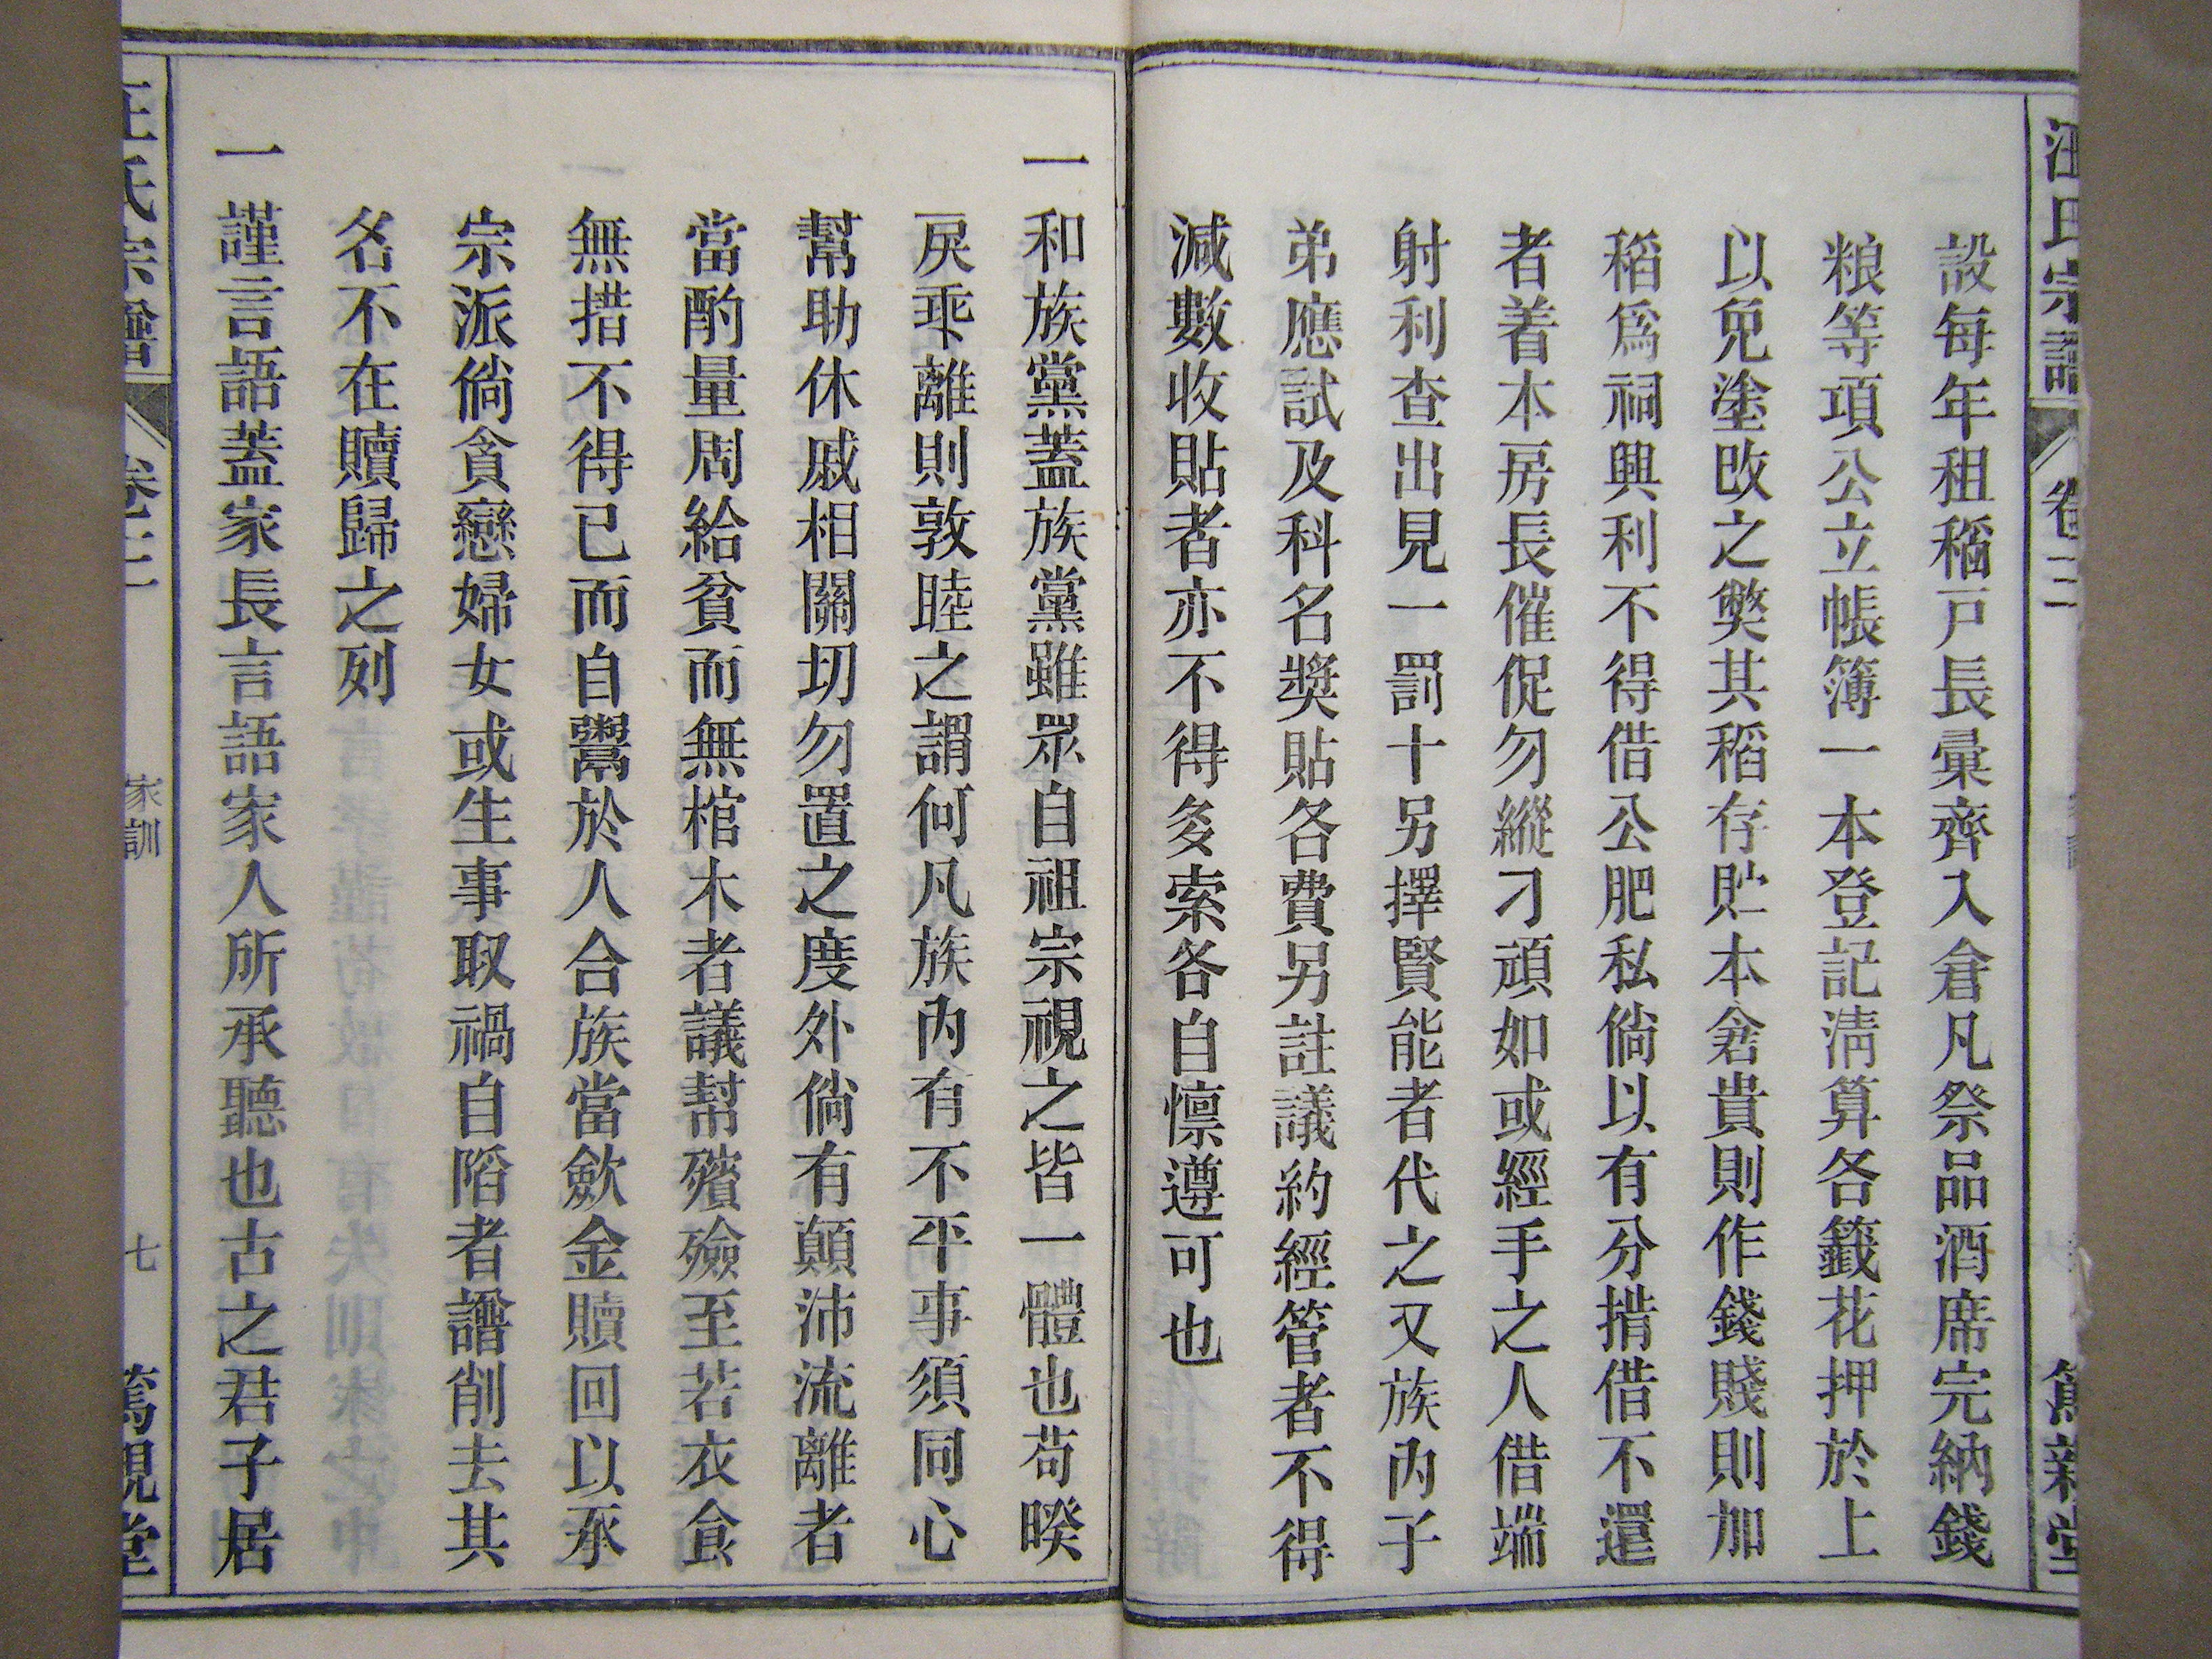 汪氏宗譜 卷二 篤親堂
設每年租稻戸長彙齊入倉凡祭品酒席完納錢
粮等項公立帳簿一本登記淸算各籤花押於上
以免塗改之獘其稻存貯本倉貴則作錢賤則加
稻爲祠興利不得借公肥私倘以有分措借不還
者着本房長催促勿縱刁頑如或經手之人借端
射利查出見一罰十另擇賢能者代之又族內子
弟應試及科名獎貼各費另註議約經管者不得
減數收貼者亦不得多索各自懍遵可也
一和族黨蓋族黨雖眾自祖宗視之皆一體也苟暌
戾乖離則敦睦之謂何凡族內有不平事須同心
幫助休戚相關切勿置之度外倘有顛沛流離者
當酌量周給貧而無棺木者議幇殯殮至若衣食
無措不得已而自鬻於人合族當歛金贖回以承
宗派倘貪戀婦女或生事取禍自陷者譜削去其
名不在贖歸之列
一謹言語蓋家長言語家人所承聽也古之君子居
汪氏宗譜 卷二 家訓 七 篤親堂